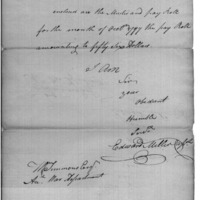 enclosed are the Muster and pay Rolls
for the month of Octr 1799 the pay Rolls
amounting to fifty Six Dollars
I am
Sir
your
Obedient
Humble
Servt
Edward Miller Capt
Wm Simmons Esqr
Act War Department